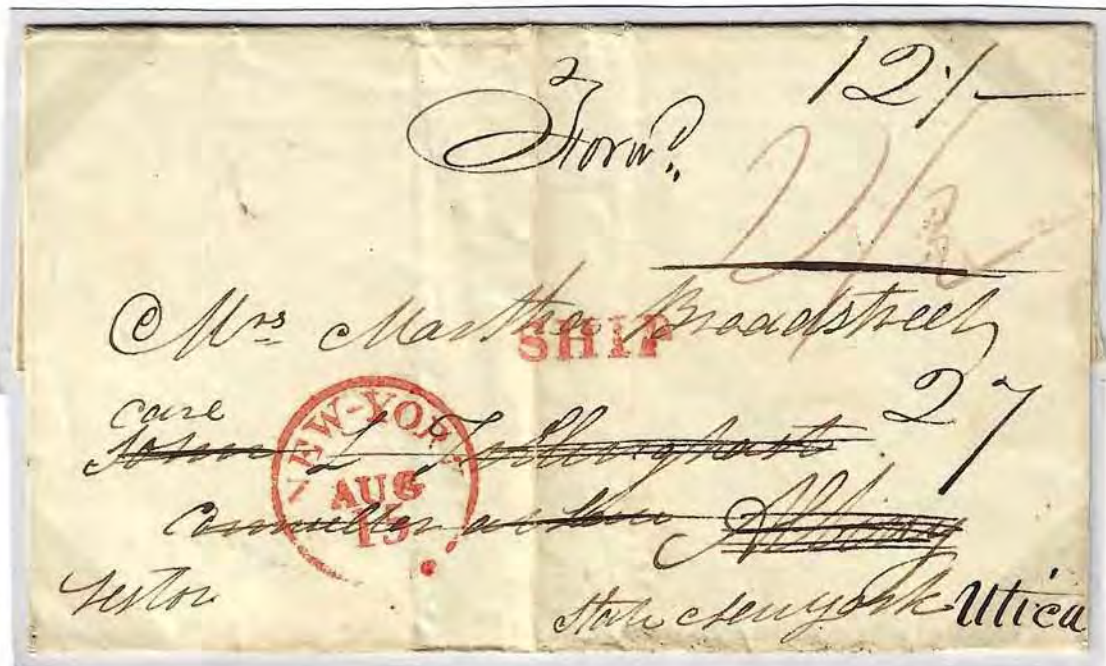 12 /-
Forwd.
2/2
Mrs Martha Bradstreet
SHIP
27
care
John L Tillinghast
NEW-YORK
AUG
15
Counseller at Law Albany
State New York Utica